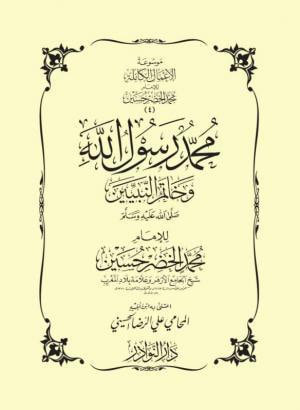 موسوعة
الأعمال الكاملة
للإمام
محمد الخضر حسين
(٤)
محمد رسول الله
وخاتم النبيين
صلى الله عليه وسلم
للإمام
محمد الخضر حسين
شيخ الجامع الأزهر وعلامة بلاد المغرب
اعتنى به ابن أخيه
المحامي علي الرضا الحسيني
دار النوادر